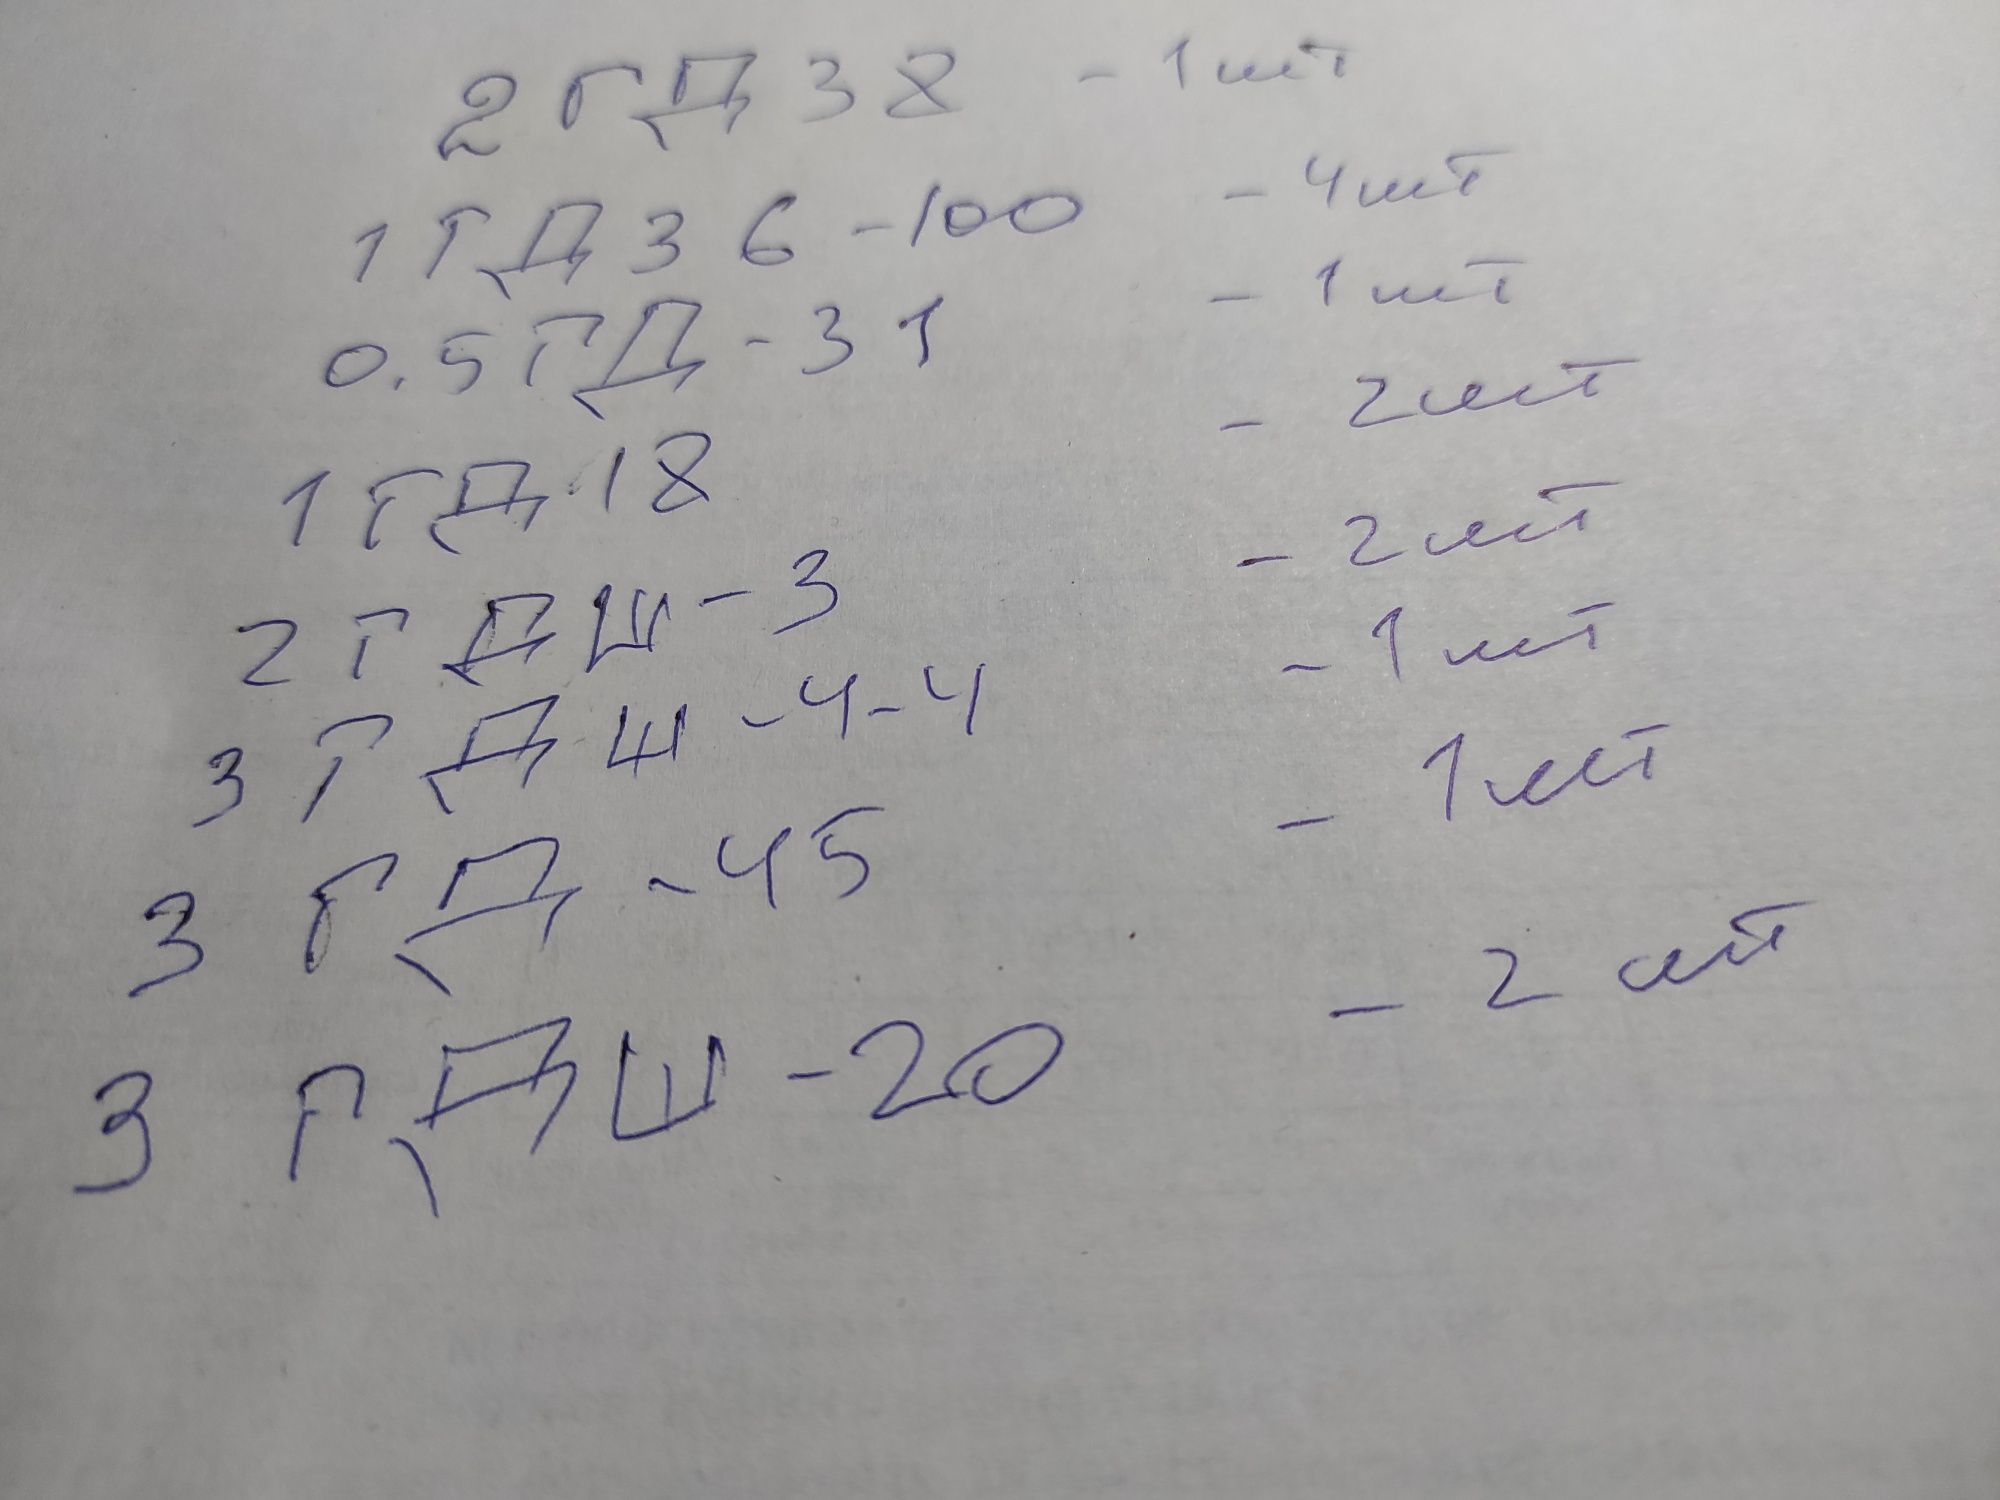 2ГД38 - 1шт
1ГД36-100 - 4шт
0.5ГД-31 - 1шт
1ГД18 - 2шт
2ГДШ-3 - 2шт
3ГДШ-4-4 - 1шт
3ГД-45 - 1шт
3ГДШ-20 - 2шт